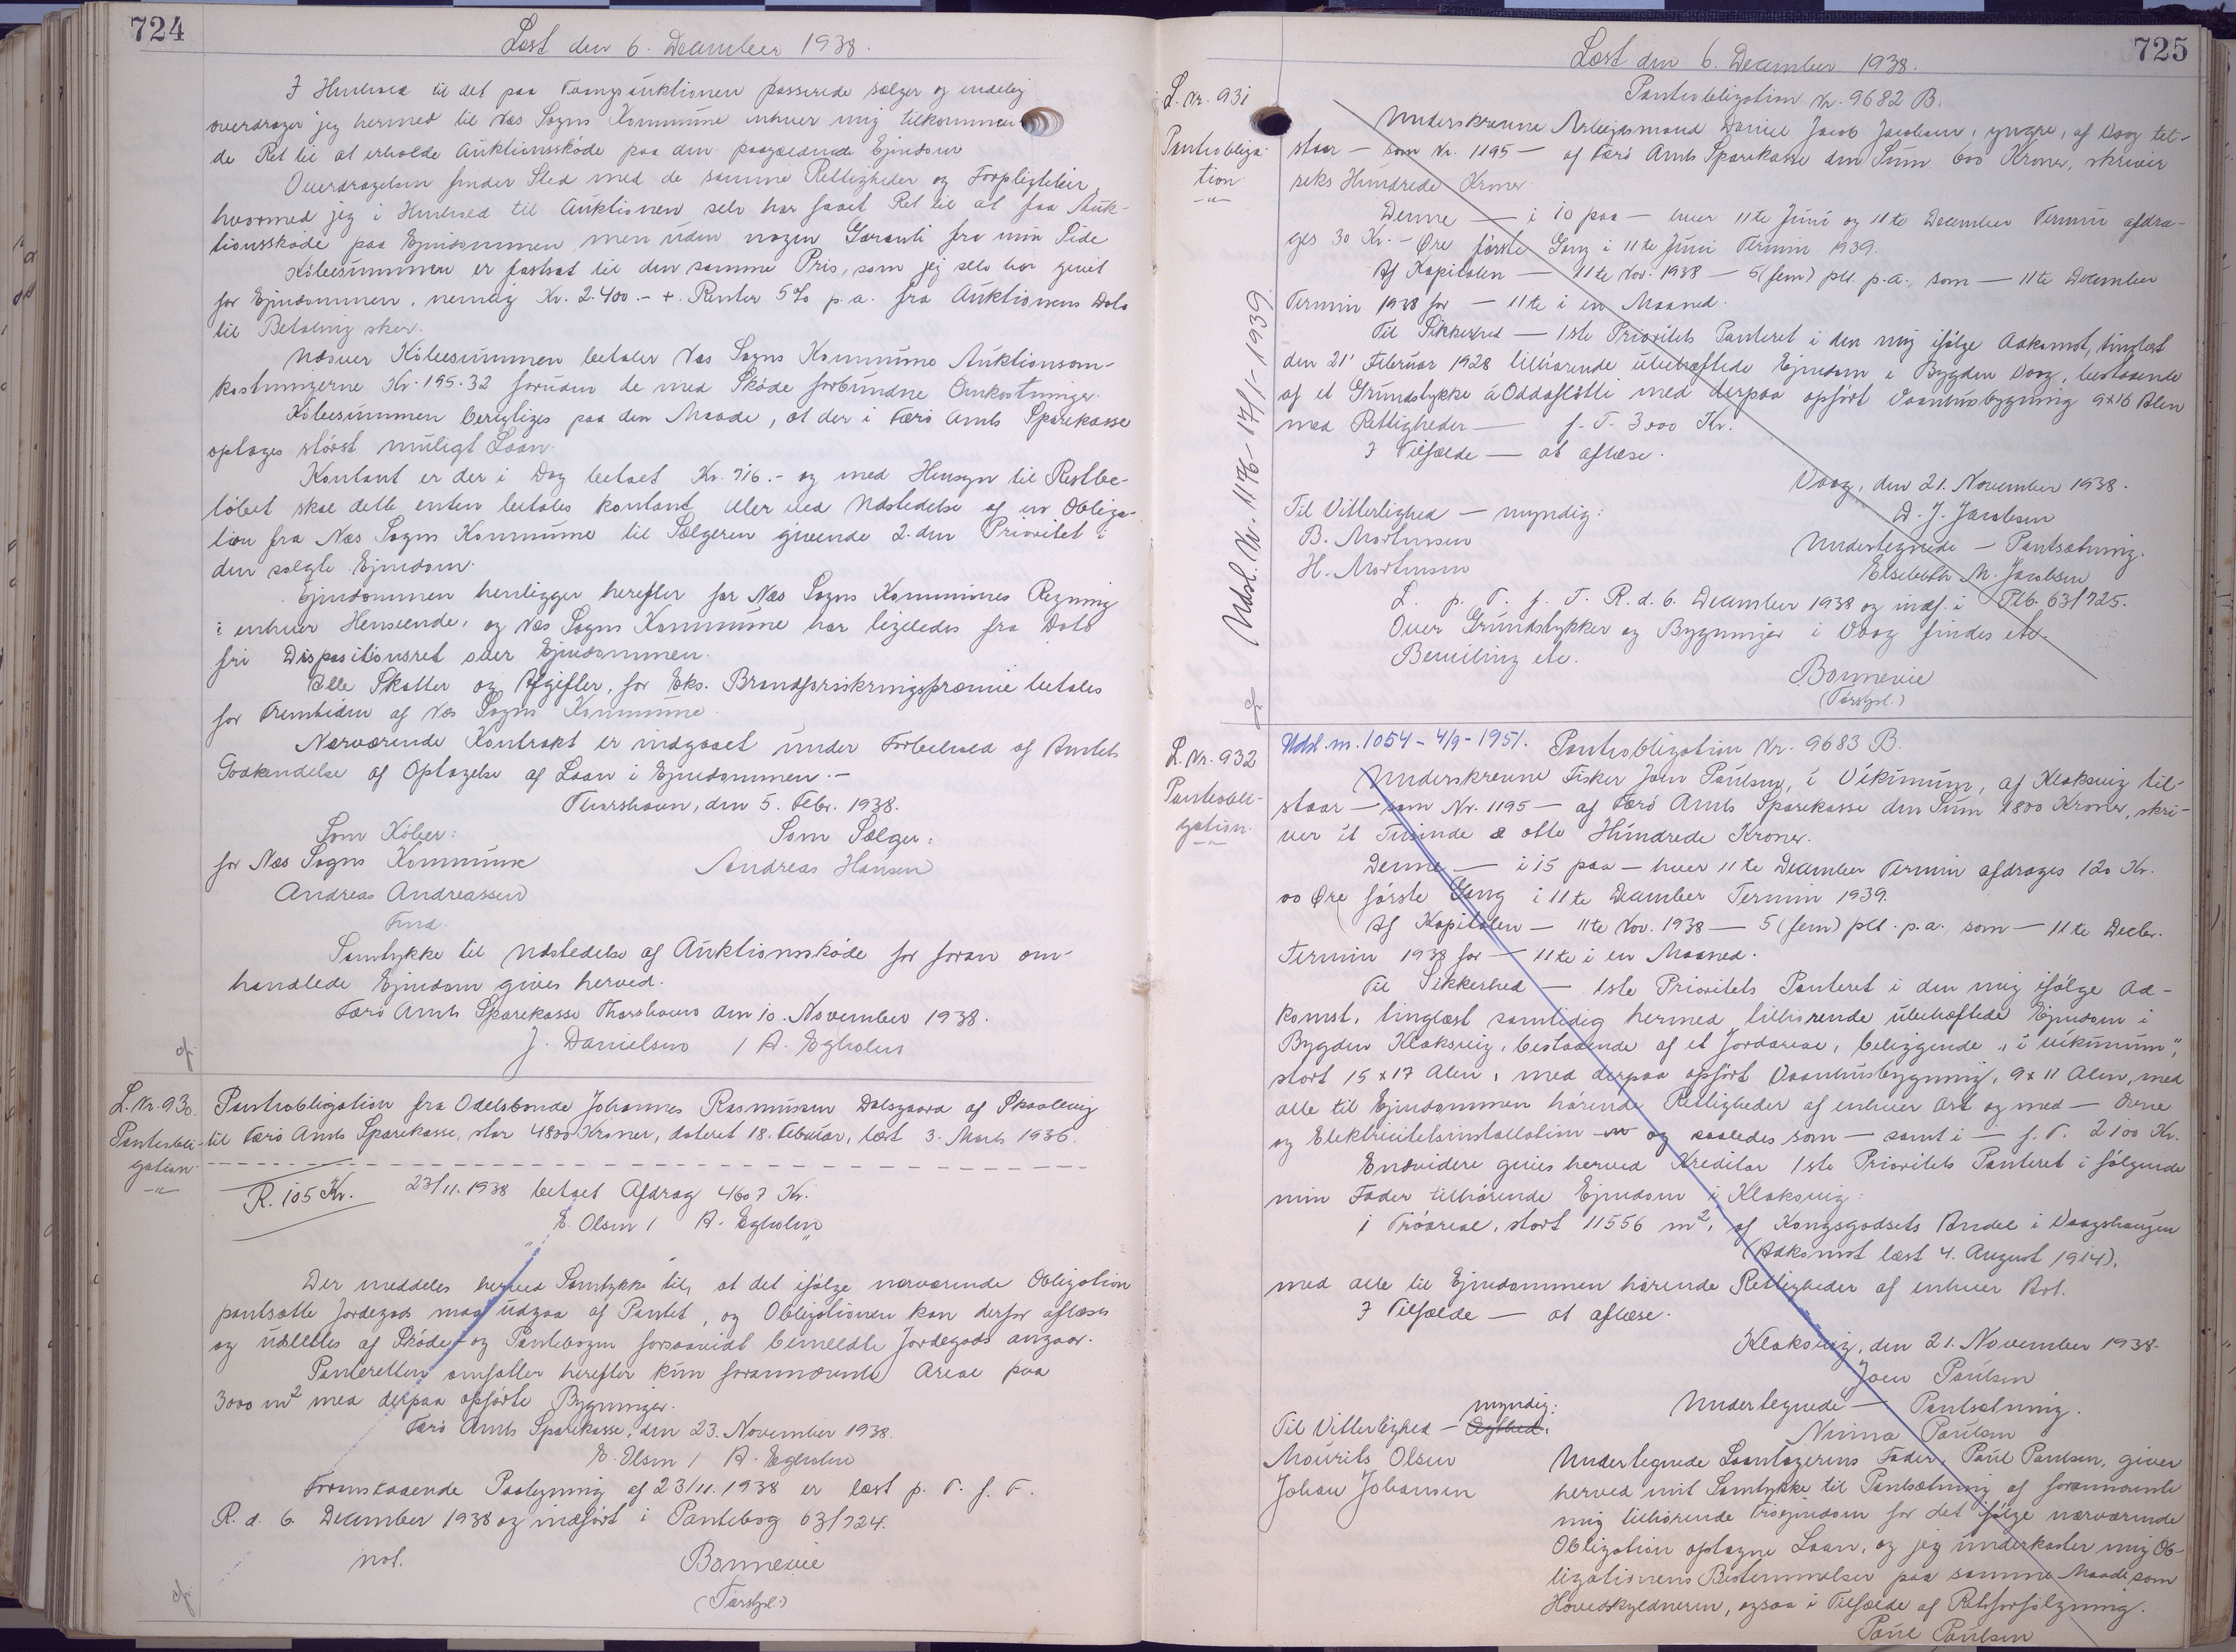 724
Læst den 6. December 1938.
I Henhold til det paa Tvangsauktionen passerede sælger og endelig
overdrager jeg hermed til Næs Sogns Kommune enhver mig tilkommen-
de Ret til at erholde Auktionsskøde paa den paagældende Ejendom
Overdragelsen finder Sted med de samme Rettigheder og Forpligtelser,
hvormed jeg i Henhold til Auktionen selv har faaet Ret til at faa Auk-
tionsskøde paa Ejendommen men uden nogen Garanti fra min Side
Købesummen er fastsat til den samme Pris, som jeg selv har givet
for Ejendommen, nemlig Kr. 2.400.- + Renter 5% p.a. fra Auktionens Dato
til Betaling sker.
Udover Købesummen betaler Næs Sogns Kommune Auktionsom-
kostningerne Kr. 195.32 foruden de med Skøde forbundne Omkostninger.
Købesummen berigtiges paa den Maade, at der i Færø Amts Sparekasse
optages størst muligt Laan.
Kontant er der i Dag betalt Kr. 716.- og med Hensyn til Restbe-
løbet skal dette enten betales kontant eller ved Udstedelse af en Obliga-
tion fra Næs Sogns Kommune til Sælgeren givende 2.den Prioritet i
den solgte Ejendom.
Ejendommen henligger herefter for Næs Sogns Kommunes Regning
i enhver Henseende, og Næs Sogns Kommune har ligeledes fra Dato
fri Dispositionsret over Ejendommen.
Alle Skatter og Afgifter, for Eks. Brandforsikringspræmie betales
for Fremtiden af Næs Sogns Kommune.
Nærværende Kontrakt er indgaaet under Forbehold af Amtets
Godkendelse af Optagelse af Laan i Ejendommen.-
Thorshavn, den 5. Febr. 1938.
Som Køber: Som Sælger:
for Næs Sogns Kommune Andreas Hansen
Andreas Andreassen
Fmd.
Samtykke til Udstedelse af Auktionsskøde for foran om-
handlede Ejendom gives herved.
Færø Amts Sparekasse Thorshavn den 10. November 1938.
J. Danielsen / A. Egholm
L. Nr. 930. Pantobligation fra Odelsbonde Johannes Rasmussen Dalsgaard af Skaalevig
Panteobli- til Færø Amts Sparekasse, stor 4800 Kroner, dateret 18. Februar, læst 3. Marts 1936.
gation
R. 105 Kr. 23/11.1938 betalt Afdrag 4607 Kr.
E. Olsen / A. Egholm
Der meddeles herved Samtykke til, at det ifølge nærværende Obligation
pantsatte Jordegods maa udgaa af Pantet, og Obligationen kan derfor aflæses
og udslettes af Skøde- og Pantebogen forsaavidt bemeldte Jordegods angaar.
Panteretten omfatter herefter kun forannævnte Areal paa
3000 m² med derpaa opførte Bygninger.
Færø Amts Sparekasse, den 23. November 1938.
E. Olsen / A. Egholm
Foranstaaende Paategning af 23/11.1938 er læst p. T. f. F.
R. d. 6. December 1938 og indført i Pantebog 63/724.
not. Bonnevie
(Færstpl.)
725
Læst den 6. December 1938.
L. Nr. 931 Pantobligation Nr. 9682 B.
Pantobliga-
tion
Underskrevne Arbejdsmand Daniel Jacob Jacobsen, yngre, af Vaag til-
staar — som Nr. 1195 — af Færø Amts Sparekasse den Sum 600 Kroner, skriver
seks Hundrede Kroner
Denne — i 10 paa — hver 11te Juni og 11te December Termin afdra-
ges 30 Kr. - Øre første Gang i 11te Juni Termin 1939.
Af Kapitalen — 11te Nov. 1938 — 5 (fem) pct. p.a., som — 11te December
Termin 1938 for — 11te i en Maaned.
Til Sikkerhed — 1ste Prioritets Panteret i den mig ifølge Adkomst, tinglæst
den 21' Februar 1928 tilhørende ubehæftede Ejendom i Bygden Vaag, bestaaende
af et Grundstykke á Oddafløtti med derpaa opført Vaaningsbygning 9x16 Alen
med Rettigheder — f. T. 3000 Kr.
I Tilfælde — at aflæse.
Vaag, den 21. November 1938.
Til Vitterlighed — myndig: D. J. Jacobsen
B. Mortensen Undertegnede — Pantsætning.
H. Mortensen Elsebeth M. Jacobsen
L. p. T. f. F. R. d. 6. December 1938 og indf. i Ptb. 63/725.
Over Grundstykker og Bygninger i Vaag findes etc.
Bevilling etc.
Bonnevie
(Færstpl.)
Udsl. Nr. 1176 - 17/1-1939
L. Nr. 932 Udsl. nr. 1054 - 4/9 - 1951. Pantobligation Nr. 9683 B.
Panteobli-
gation
Underskrevne Fisker Joen Poulsen, i Vikunum, af Klaksvig til-
staar — som Nr. 1195 — af Færø Amts Sparekasse den Sum 1800 Kroner, skri-
ver et Tusinde & otte Hundrede Kroner.
Denne — i 15 paa — hver 11te December Termin afdrages 120 Kr.
00 Øre første Gang i 11te December Termin 1939.
Af Kapitalen — 11te Nov. 1938 — 5 (fem) pct. p.a., som — 11te Decbr.
Termin 1938 for — 11te i en Maaned.
Til Sikkerhed — 1ste Prioritets Panteret i den mig ifølge Ad-
komst, tinglæst samtidig hermed tilhørende ubehæftede Ejendom i
Bygden Klaksvig, bestaaende af et Jordareal, beliggende „i vikunum",
stort 15 x 17 Alen, med derpaa opført Vaaningsbygning, 9 x 11 Alen, med
alle til Ejendommen hørende Rettigheder af enhver Art og med — Ovne
og Elektricitetsinstallation og saaledes som — samt i — f. T. 2100 Kr.
Endvidere gives herved Kreditor 1ste Prioritets Panteret i følgende
min Fader tilhørende Ejendom i Klaksvig:
1 Tróareal, stort 11556 m², af Kongsgodsets Andel i Vaagshaugen
(Adkomst læst 4. August 1914),
med alle til Ejendommen hørende Rettigheder af enhver Art.
I Tilfælde — at aflæse.
Klaksvig, den 21. November 1938.
Joen Poulsen
myndig: Undertegnede — Pantsætning.
Til Vitterlighed — Ægthed: Ninna Poulsen
Mourits Olsen Undertegnede Laantagerens Fader, Poul Poulsen, giver
Johan Johansen herved mit Samtykke til Pantsætning af forannævnte
mig tilhørende Tróejendom for det ifølge nærværende
Obligation optagne Laan, og jeg underkaster mig Ob-
ligationens Bestemmelser paa samme Maade som
Hovedskyldneren, ogsaa i Tilfælde af Retsforfølgning.
Poul Poulsen